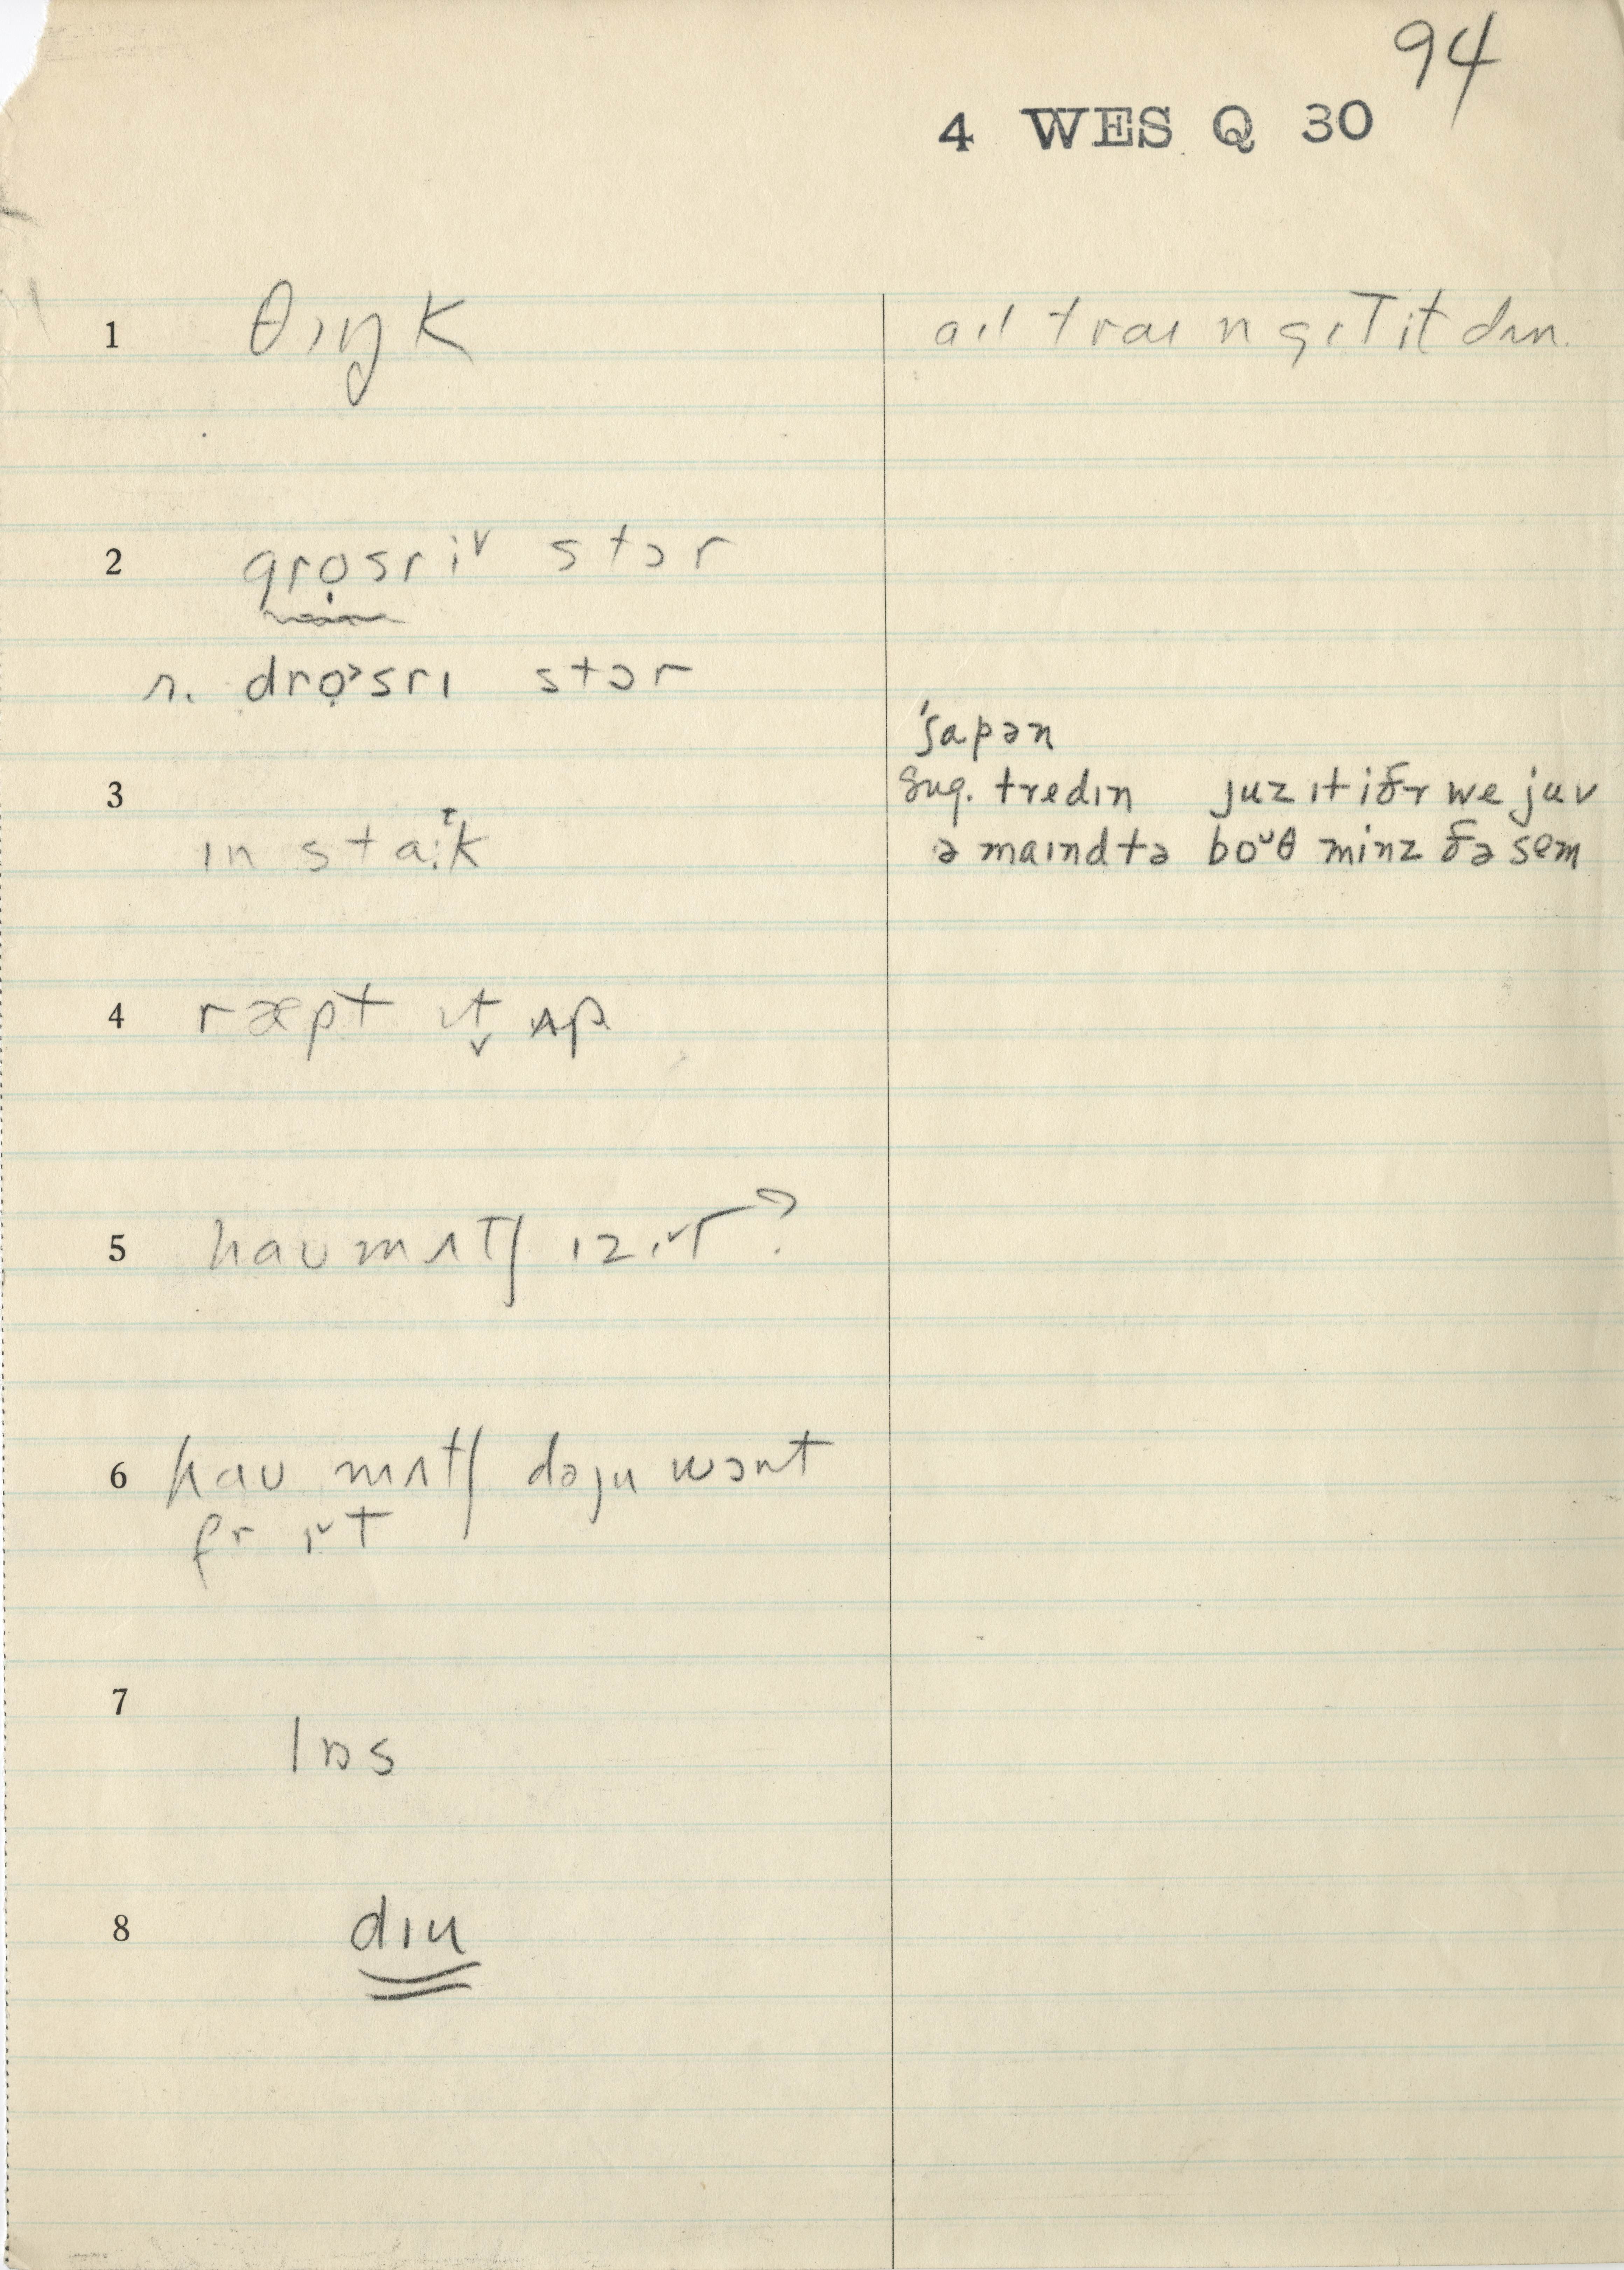 94
4 WES Q 30
1 θɪŋk
aɪl traɪ n gɪt it dʌn.
2 gro̩sriᵛ stɔr
r. dro̩˃srɪ stɔr
'ʃapən
3 sug. tredɪn juz ɪt iðr we juv
ɪn staːᵗk
ə maɪnd tə boᵘθ minz ðə sem
4 ræpt ɪt̬ ʌp
5 haʊ mʌtʃ ɪz ɪᵛt?
6 haʊ mʌtʃ dəju wɔnt
fr ɪᵛt
7 lɒs
8 dɪu